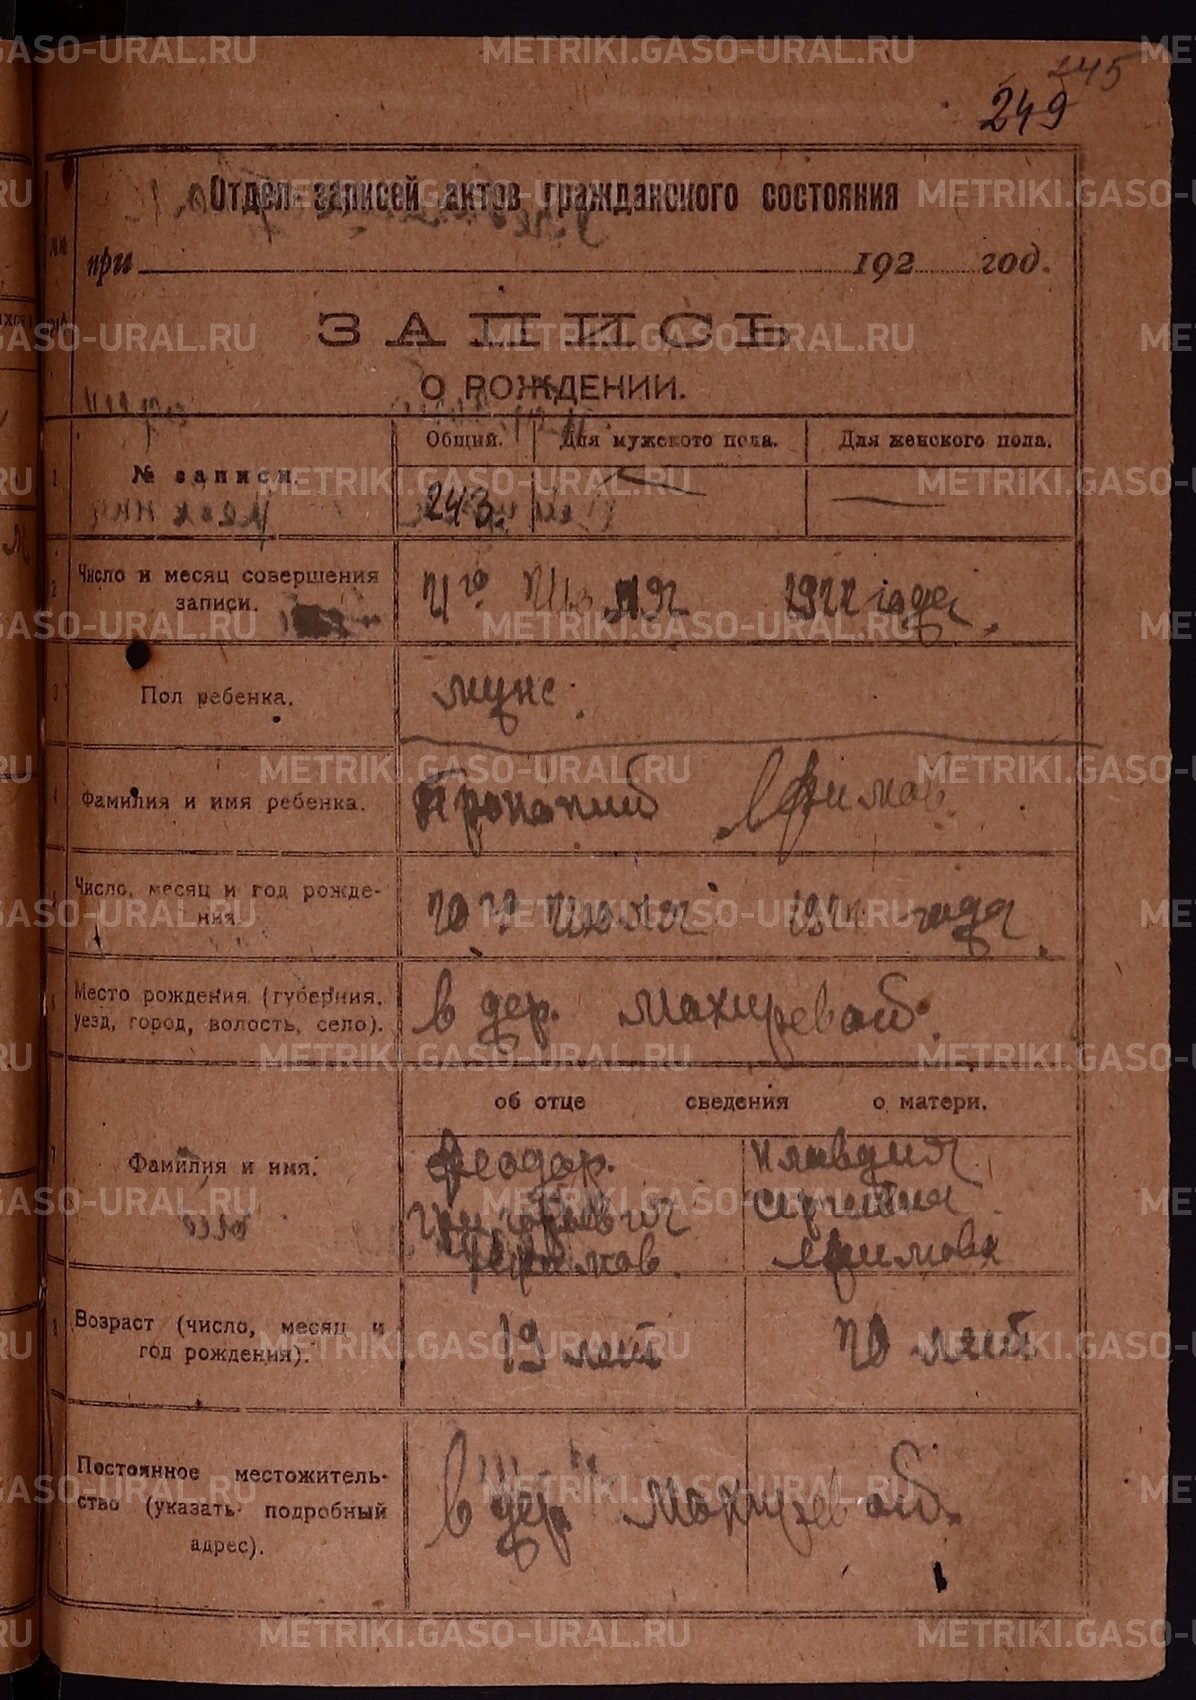 245
249
Отдел записей актов гражданского состояния
при 192 год.
ЗАПИСЬ
О РОЖДЕНИИ.
Общий. Для мужского пола. Для женского пола.
1 № записи. 243
2 Число и месяц совершения
записи.
21го 1922 года.
3 Пол ребенка. муж.
4 Фамилия и имя ребенка. Прокопий Ефимов
Число, месяц и год рожде-
ния
20го июля года.
Место рождения (губерния,
уезд, город, волость, село).
в дер. Махиревой.
об отце сведения о матери.
7 Фамилия и имя.
Феодор. Клавдия
Григорьевич Сергеевна
Ефимов. Ефимова
8 Возраст (число, месяц и
год рождения).
19 лет 20 лет
Постоянное местожитель-
ство (указать подробный
адрес).
в дер. Махиревой.
METRIKI.GASO-URAL.RU